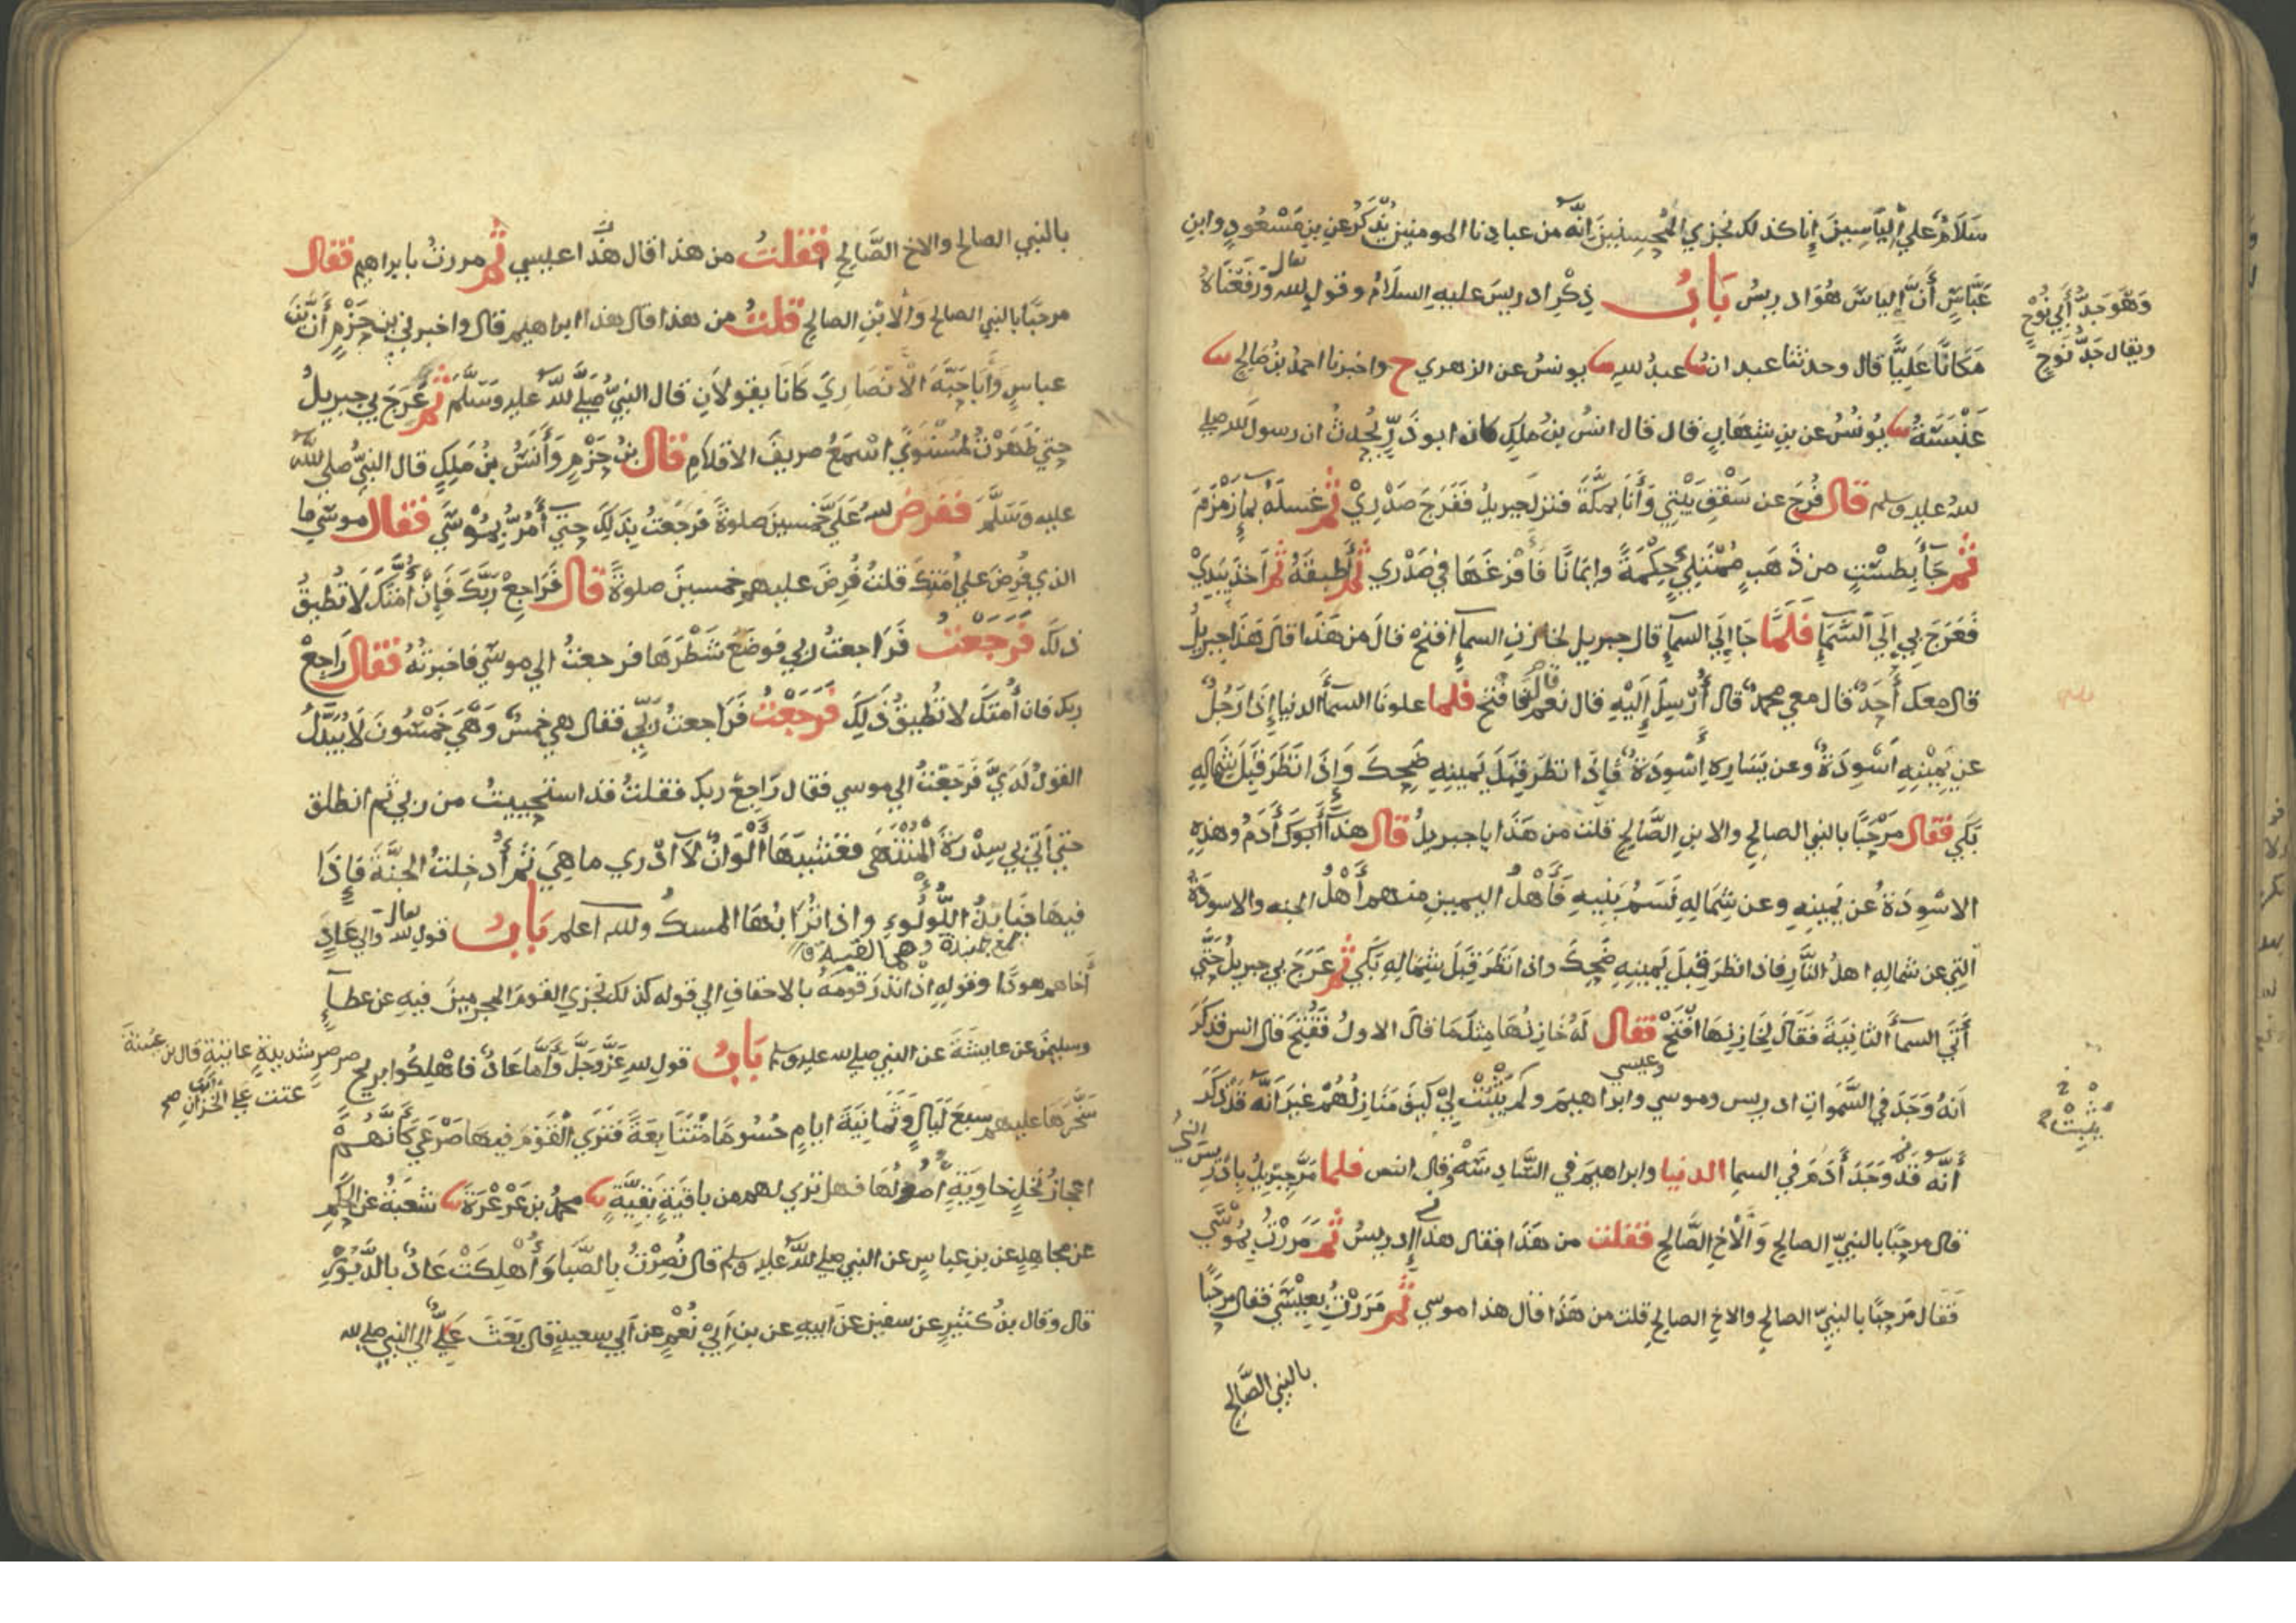 سَلَامٌ عَلَي إِلْيَاسِينَ إِنَّا كذلك نَجْزِي الْمُحْسِنِينَ إِنَّهُ من عبادنا المومنين يُذْكَرُ عن بن مَسْعُودٍ وابن
عَبَّاسٍ أَنَّ إِلياسَ هُوَ ادريسُ بَابُ ذِكْرِ ادريسَ عليه السلامُ وقولِ الله تعالى وَرَفَعْنَاهُ
وَهُوَ جَدُّ أَبِي نُوحٍ
ويقال جَدُّ نُوحٍ
مَكَانًا عَلِيًّا قال وحدثنا عبدان عبدُ الله يونسُ عن الزهري ح واخبرنا احمدُ بنُ صَالِحٍ
عَنْبَسَةُ يُونُسُ عن بنِ شِهَابٍ قال قال انسُ بنُ ملِكٍ كان ابو ذَرٍّ يُحدثُ ان رسول الله صلي
الله عليه وسلم قال فُرِجَ عن سَقْفِ بَيْتِي وَأَنَا بمكَّةَ فنزل جبريلُ فَفَرَجَ صَدْرِيْ ثم غسلَهُ بماءِ زَمْزَمَ
ثُم جَآءَ بِطَسْتٍ من ذَهَبٍ مُمْتَلِئٍ حِكْمَةً وايمَانًا فَأَفْرَغَهَا في صَدْرِي ثم أَطبقَهُ ثم أَخذ بِيَدِيْ
فَعَرَجَ بِي إِلَي السَّمَاءِ فَلَمَّا جَا إِلَي السمآءِ قال جبريل لخازنِ السمآءِ افتح قالَ من هَذَا قالَ هَذَا جبريلُ
قال معك أَحَدٌ قال معي محمدٌ قال أُرْسِلَ إِلَيْهِ قال نعم فافتح فلما علونَا السمآءَ الدنيا إِذَا رَجُلٌ
عن يَمِيْنِهِ أَسْوِدَةٌ وعن يَسَارِهِ أَسْوِدَةٌ فَإِذَا نظرَ قِبَلَ يَمينِهِ ضَحِكَ وَإِذَا نَظَرَ قِبَلَ شِمَالِهِ
بَكَي فقال مَرْحَبًا بالنبي الصالحِ والابنِ الصَّالحِ قلت من هَذَا يا جبريلُ قال هذا أَبُوكَ أَدَمُ وهذِهِ
الاسْوِدَةُ عن يَمِينِهِ وعن شِمَالِهِ نَسَمُ بَنِيهِ فَأَهْلُ اليمينِ منهم أَهْلُ الجنه والاسودَةُ
التي عن شمالِهِ اهلُ النَّارِ فاذا نظرَ قِبَلَ يَمينِهِ ضَحِكَ واذا نَظَرَ قِبَلَ شِمَالِهِ بَكَي ثم عَرَجَ بي جبريلُ حَتَّي
أَتَي السمآءَ الثانِيَةَ فَقَالَ لِخَازِنِهَا افْتَحْ فقال لَهُ خازِنُهَا مِثْلَ مَا قالَ الاولُ فَفَتَحَ قال انس فذكَرَ
انهُ وَجَدَ في السَّمَواتِ ادريس وموسي وعيسي وابراهيم ولم يُثْبِتْ لِيْ كَيْفَ مَنَازِلُهُمْ غيرَ أَنَّهُ قَدْ ذَكَرَ
أَنَّهُ قَدْ وَجَدَ أَدَمَ في السما الدنيا وابراهيمَ في السَّادِسَةِ وقال انس فلما مَرَّ جبريلُ بِادْرِيسَ
قال مرحبًا بالنبيِّ الصالحِ وَالْأَخِ الصَّالحِ فقلت من هَذَا فقال هذا إِدريسُ ثم مَرَرْتُ بِمُوْسَي
فَقَال مَرحبًا بالنبيّ الصالحِ والاخِ الصالحِ قلت من هَذَا قال هذا موسي ثم مَرَرْتُ بِعِيْسَي فقال مرحبًا
بالنبي الصَّالحِ
بالنبي الصالحِ والاخ الصَّالحِ فقلتُ من هذا قال هذا عيسي ثم مررتُ بابراهيم فقال
مرحبًا بالنبي الصالحِ وَالْابْنِ الصالحِ قلتُ من هذا قال هذا ابراهيم قال واخبرني بن حَزْمٍ أَنَّ بْنَ
عباسٍ وَأَبَا حَبَّةَ الْأَنْصَارِيَّ كَانَا يقولَانِ قال النبيُّ صَلَّي اللَّهُ عليه وَسَلَّمَ ثم عُرِجَ بي جبريلُ
حتي ظَهَرْتُ لمُسْتَوًي اسْمَعُ صريفَ الاقلامِ قال بْنُ حَزْمٍ وَأَنَسُ بنُ مَلِكٍ قال النبيُّ صلي الله
عليه وَسَلَّمَ فَفَرَضَ اللهُ عَلَيَّ خمسينَ صلوةً فَرَجَعْتُ بِذَلِكَ حَتَّي أَمُرَّ بِمُوْسَي فقال موسَي ما
الذي فُرِضَ علي أُمَتِكَ قلتُ فُرِضَ عليهم خمسينَ صلوةً قال فَرَاجِعْ رَبَّكَ فَإِنَّ أُمَّتَكَ لَا تُطِيقُ
ذلك فَرَجَعْتُ فَرَاجعتُ ربي فوضَعَ شَطْرَهَا فرجعتُ الي موسَي فاخبرتُهُ فقال رَاجِعْ
ربك فان أُمَتَكَ لا تُطِيقُ ذَلِكَ فَرَجَعْتُ فَرَاجعتُ رَبّي فقال هي خمسٌ وَهِيَ خَمْسُونَ لَا يُبَدَّلُ
القولُ لَدَيَّ فَرَجَعْتُ الي موسي فقال رَاجِعْ ربك فقلتُ قد استحييتُ من ربي ثم انطلق
حتي أَتَي بي سِدْرَةَ الْمُنْتَهَي فغَشِيَهَا أَلْوَانٌ لَا أَدْرِي ما هِيَ ثم أُدخِلتُ الجنَّةَ فَإِذَا
فيهَا جَنَابِذُ اللُّؤْلُوءِ واذا تُرَابُهَا المسكُ والله اعلم بَابُ قولِ الله تعالى والي عَادٍ
جمع جنبذة وهي القبة
أَخاهم هودًا وقولِهِ اذْ انذرَ قومَهُ بالاحقافِ الي قوله كذلك نجزي القومَ المجرمينَ فيهِ عن عطآءٍ
وسليمنَ عن عايشَةَ عن النبي صلي الله عليه وسلم بَابُ قولِ الله عَزَّ وَجَلَّ وَأَمَّا عَادٌ فاهْلِكُوا بريحٍ
صرصرٍ شديدةٍ عاتيةٍ قال بن عيينة
عتت علي الخزان صح
سَخَّرَهَا عليهم سبعَ لَيَالٍ وَثَمَانِيَةَ ايامٍ حُسُومًا مُتَتَابِعَةً فَتَرَي الْقَوْمَ فيها صَرْعَي كَأَنَّهُمْ
اعجازُ نخلٍ خاوِيَةٍ أُصُولُهَا فهل تري لهم من باقيَةٍ بَقِيَّةٍ محمدُ بنُ عَرْعَرَةَ شعبَةُ عن الحكمِ
عن مجاهِدٍ عن بن عباسٍ عن النبي صلي الله عليه وسلم قال نُصِرْتُ بِالصَّبَا وَأُهْلِكَتْ عَادٌ بالدَّبُوْرِ
قال وقال بنُ كَثيرٍ عن سفينَ عن ابيهِ عن بنِ أَبِيْ نُعْمٍ عن أبي سعيدٍ قال بَعَثَ عَلِيٌّ الي النبي صلي الله